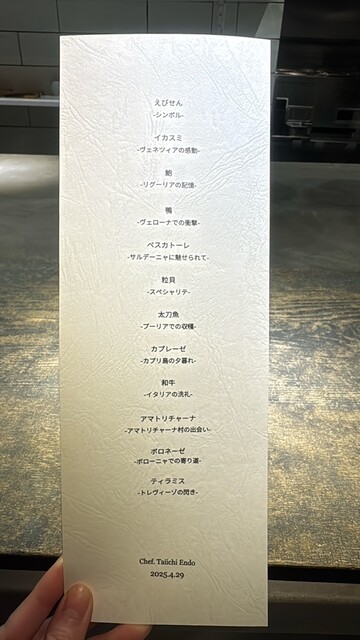 えびせん
-シンボル-
イカスミ
-ヴェネツィアの感動-
鮑
-リグーリアの記憶-
鴨
-ヴェローナでの衝撃-
ペスカトーレ
-サルデーニャに魅せられて-
粒貝
-スペシャリテ-
太刀魚
-プーリアでの収穫-
カプレーゼ
-カプリ島の夕暮れ-
和牛
-イタリアの洗礼-
アマトリチャーナ
-アマトリチャーナ村の出会い-
ボロネーゼ
-ボローニャでの寄り道-
ティラミス
-トレヴィーゾの閃き-
Chef. Taiichi Endo
2025.4.29